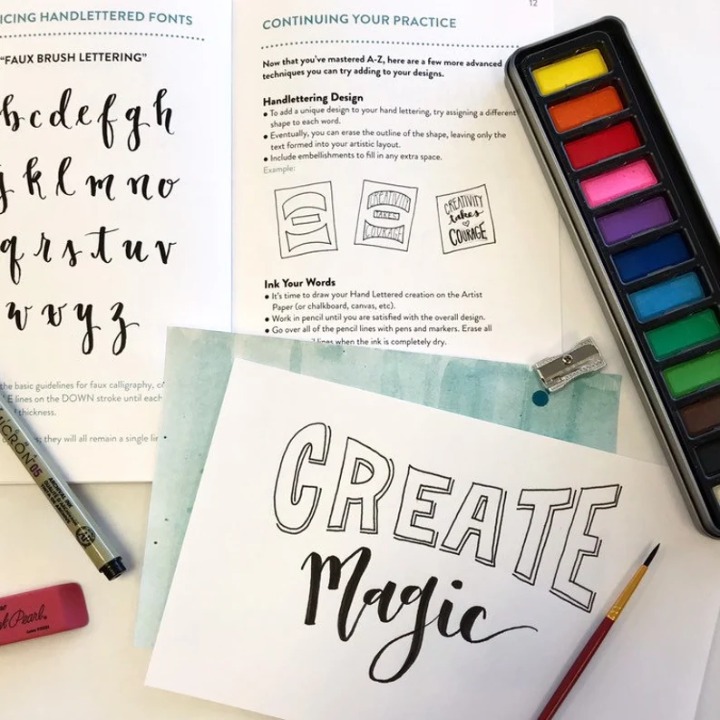 HANDLETTERED FONTS
"FAUX BRUSH LETTERING"
b c d e f g h
j k l m n o
q r s t u v
w x y z
the basic guidelines for faux calligraphy,
lines on the DOWN stroke until each
thickness.
they will all remain a single
12
CONTINUING YOUR PRACTICE
Now that you've mastered A-Z, here are a few more advanced
techniques you can try adding to your designs.
Handlettering Design
• To add a unique design to your hand lettering, try assigning a different
shape to each word.
• Eventually, you can erase the outline of the shape, leaving only the
text formed into your artistic layout.
• Include embellishments to fill in any extra space.
Example:
CREATIVITY
TAKES
COURAGE
CREATIVITY
takes
COURAGE
Ink Your Words
• It's time to draw your Hand Lettered creation on the Artist
Paper (or chalkboard, canvas, etc).
• Work in pencil until you are satisfied with the overall design.
• Go over all of the pencil lines with pens and markers. Erase all
lines when the ink is completely dry.
MICRON 05
ARCHIVAL INK
Pearl
CREATE
Magic